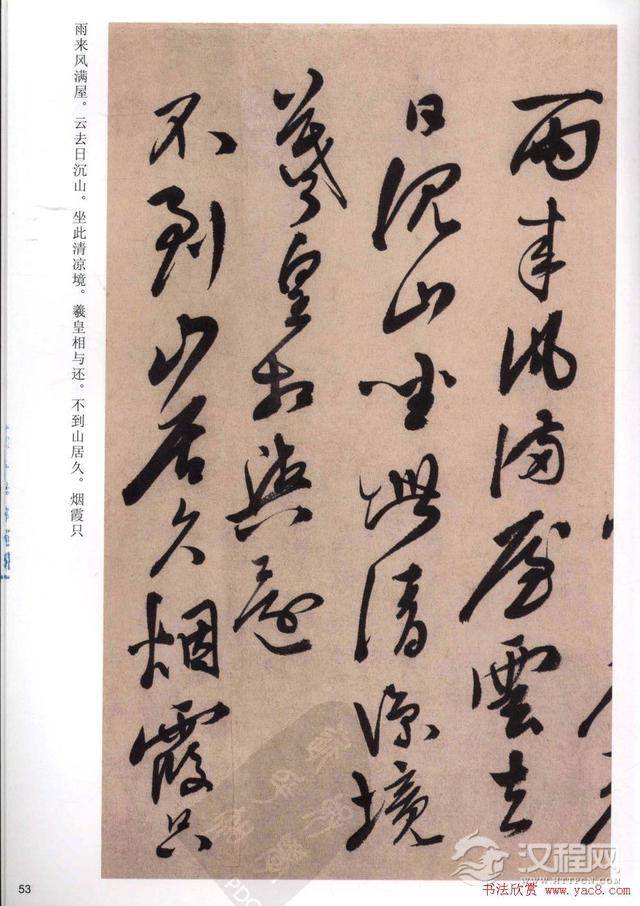 雨来风满屋。云去日沉山。坐此清凉境。羲皇相与还。不到山居久。烟霞只
雨来風满屋雲去
日沉山坐此清凉境
羲皇相與還
不到山居久烟霞只
53
汉程网
WWW.HTTPCN.COM
书法欣赏 www.yac8.com